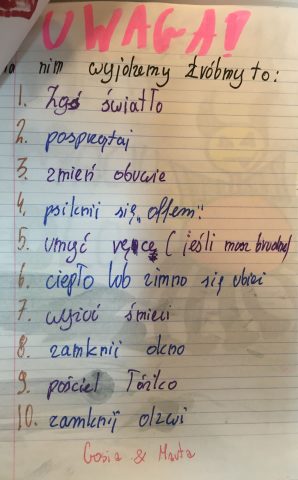 UWAGA!
nim wyjdziemy zróbmy to:
1. Zgaś światło
2. posprzątaj
3. zmień obuwie
4. psiknij się „offem"
5. umyć ręce (jeśli masz brudne)
6. ciepło lob zimno się ubież
7. wyzóć śmieci
8. zamknij okno
9. pościel łóżko
10. zamknij dzwi
Gosia & Marta